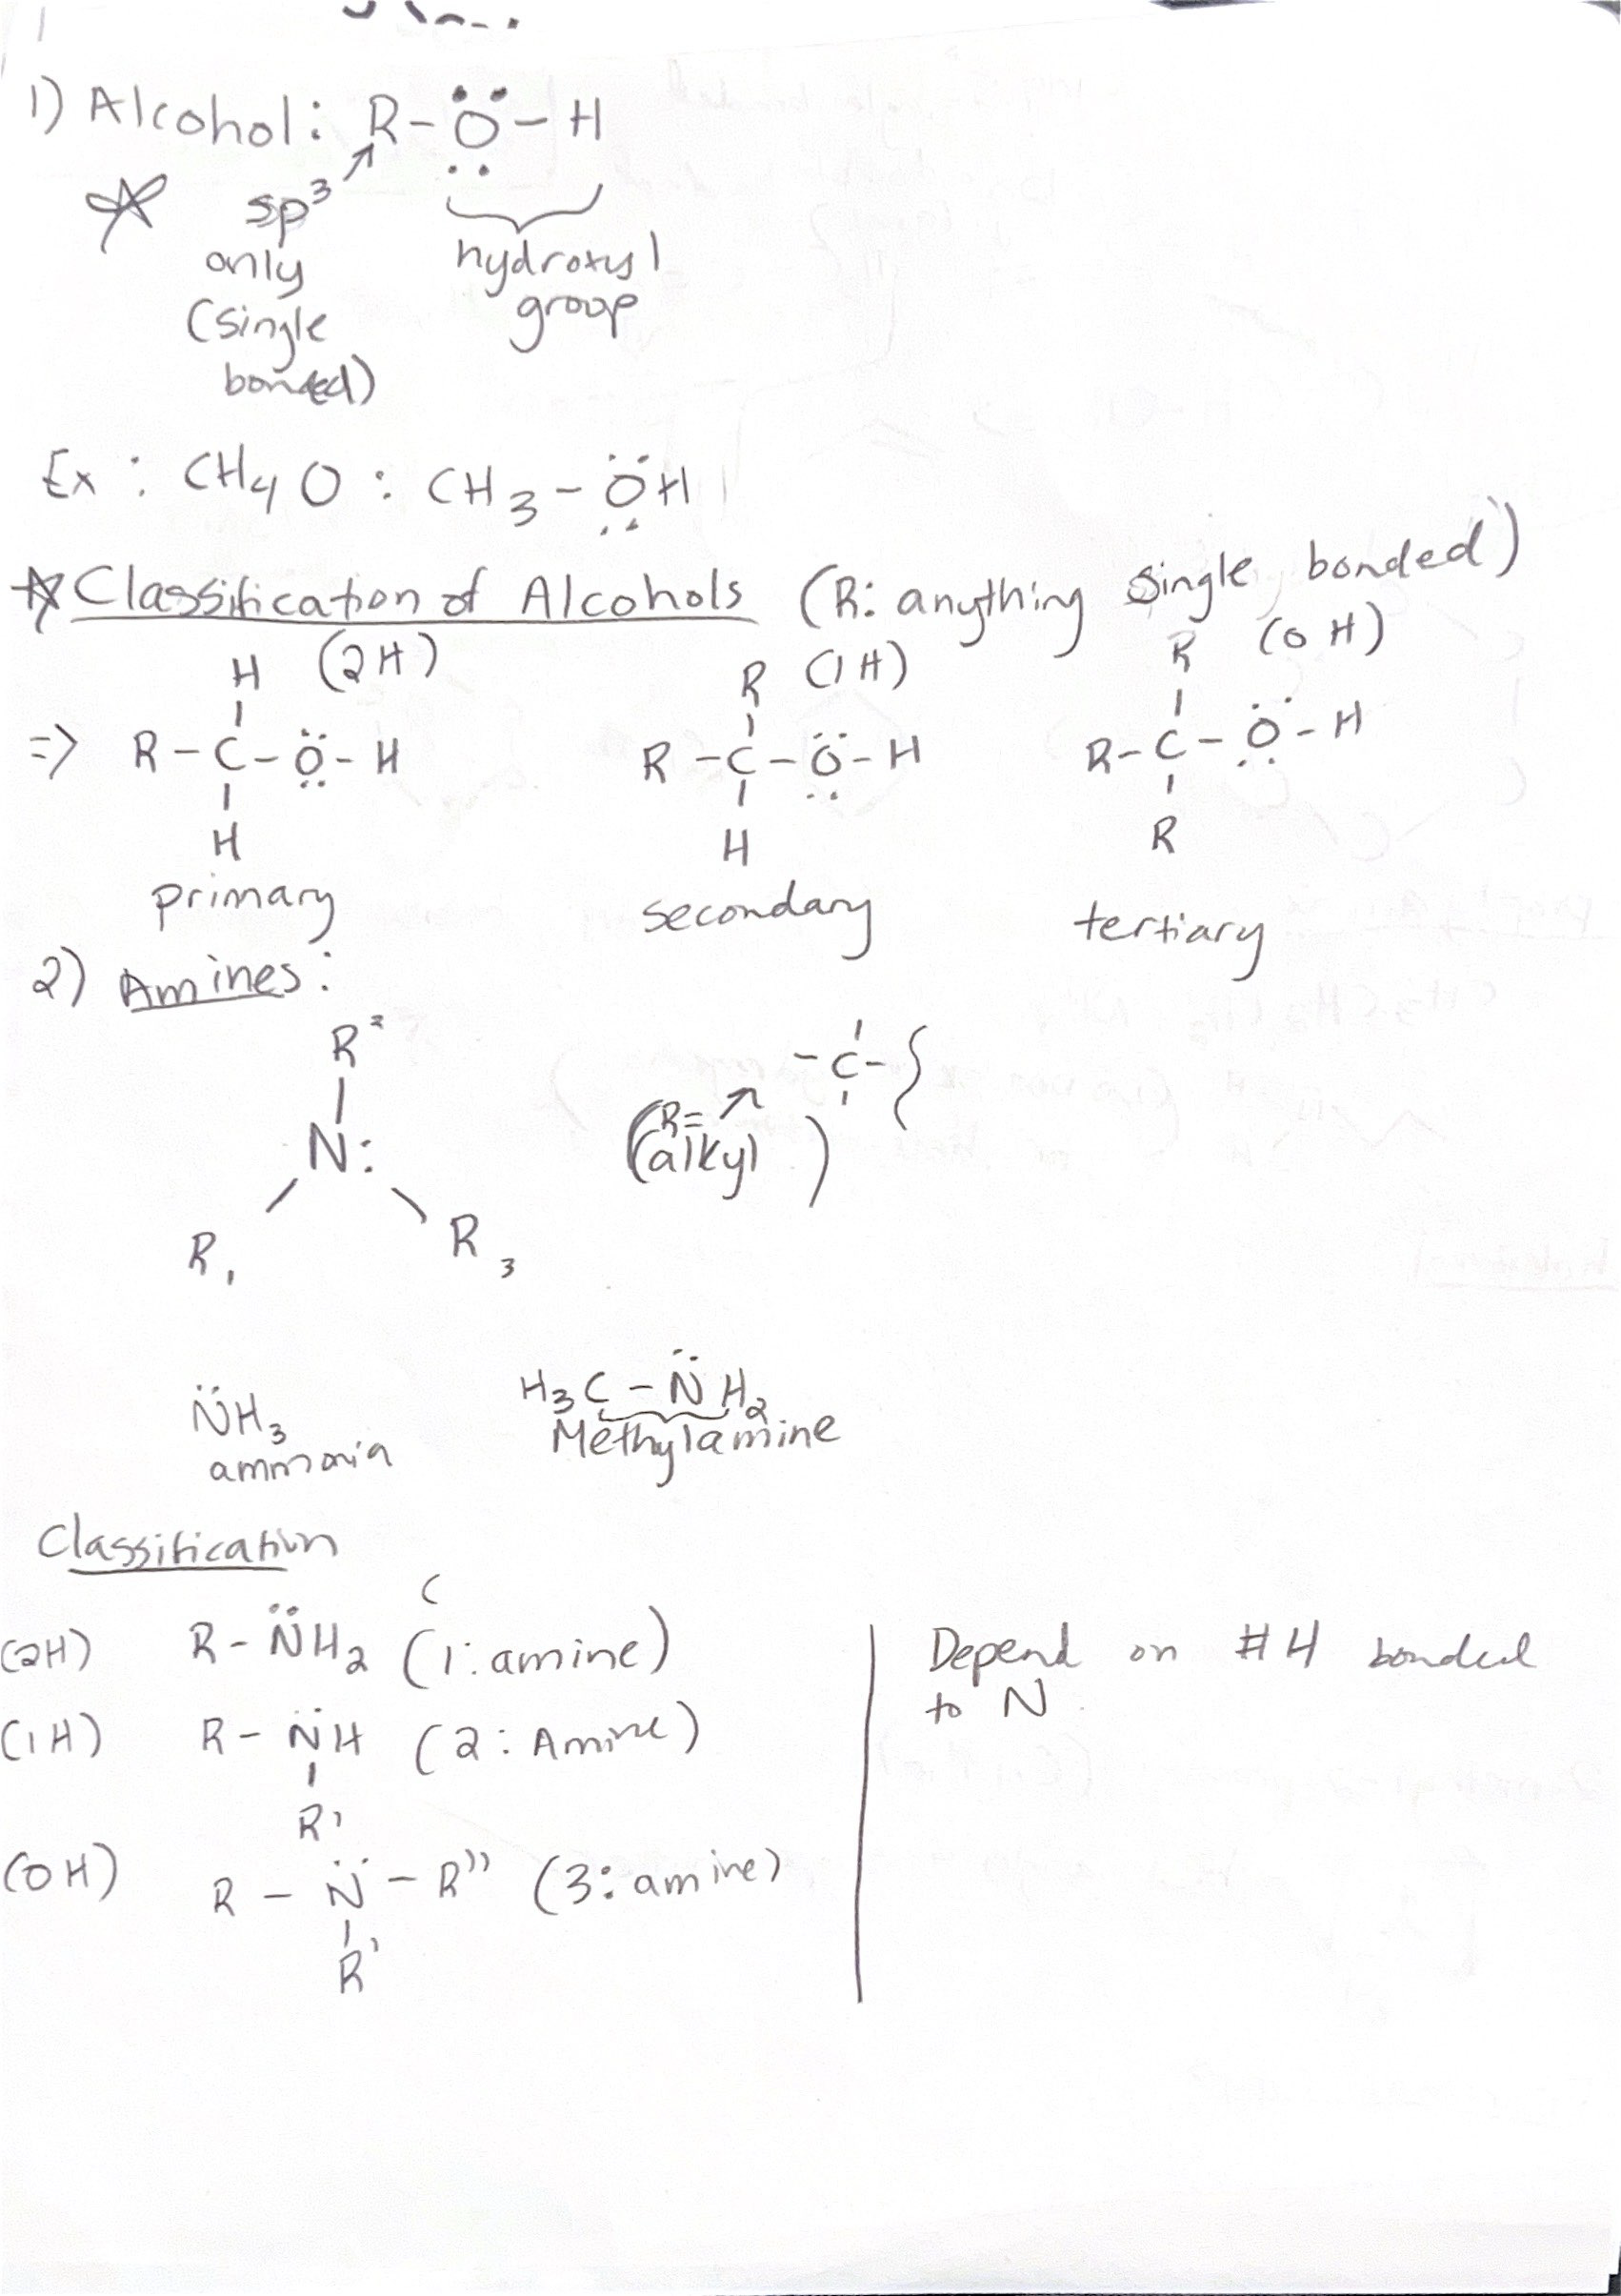 1) Alcohol: R-Ö-H
sp³
only
(single
bonded)
hydroxyl
group
Ex: CH₄O: CH₃-ÖH
Classification of Alcohols (R: anything single bonded)
(2H) (1H) (0H)
H R R
=> R-C-Ö-H R-C-Ö-H R-C-Ö-H
H H R
primary secondary tertiary
2) Amines:
R²
-C-
N:
(R=
(alkyl)
R₁ R₃
N̈H₃ H₃C-N̈H₂
ammonia Methylamine
Classification
C
(2H) R-N̈H₂ (1: amine)
(1H) R-N̈H (2: Amine)
R'
(0H) R-N̈-R'' (3: amine)
R'
Depend on #H bonded
to N